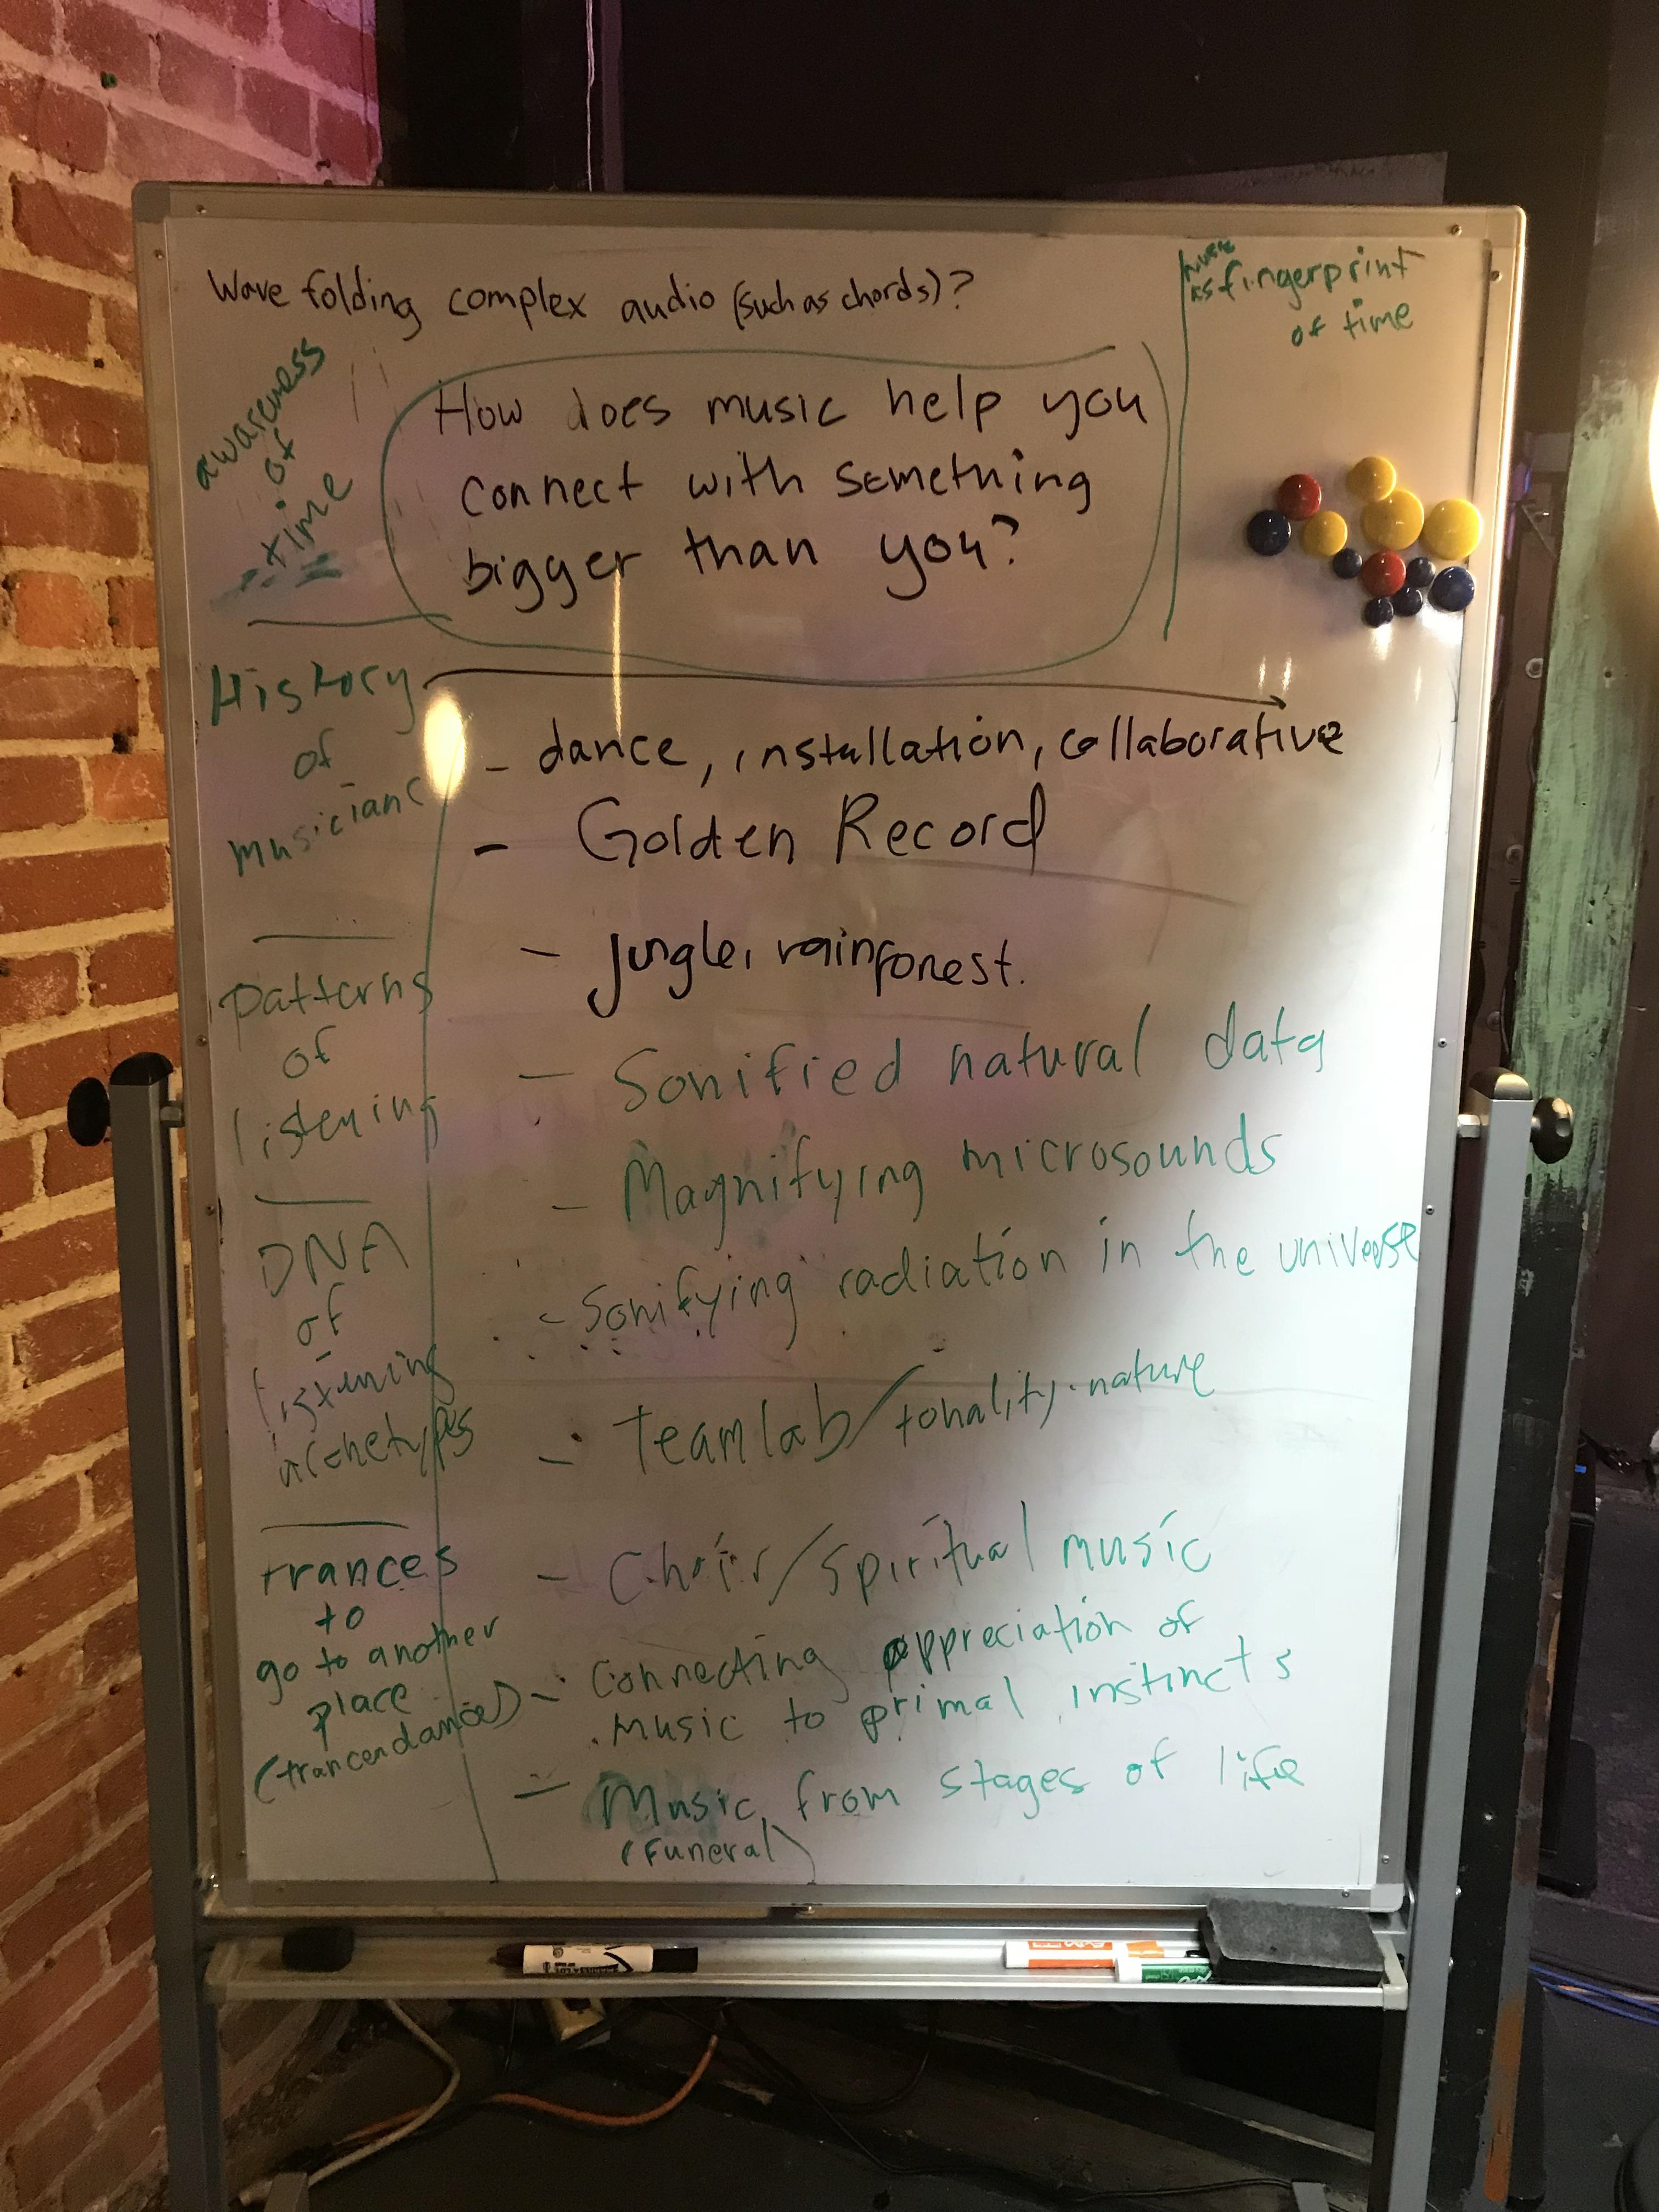 Wave folding complex audio (such as chords)?
music
as fingerprint
of time
awareness
of
time
How does music help you
connect with something
bigger than you?
History
of
musicians
patterns
of
listening
DNA
of
listening
archetypes
trances
to
go to another
place
(trancendance)
- dance, installation, collaborative
- Golden Record
- jungle, rainforest.
- Sonified natural data
- Magnifying microsounds
- Sonifying radiation in the universe
- Teamlab/tonality.nature
- Choir/spiritual music
- Connecting appreciation of
music to primal instincts
- Music from stages of life
(Funeral)
EXPO